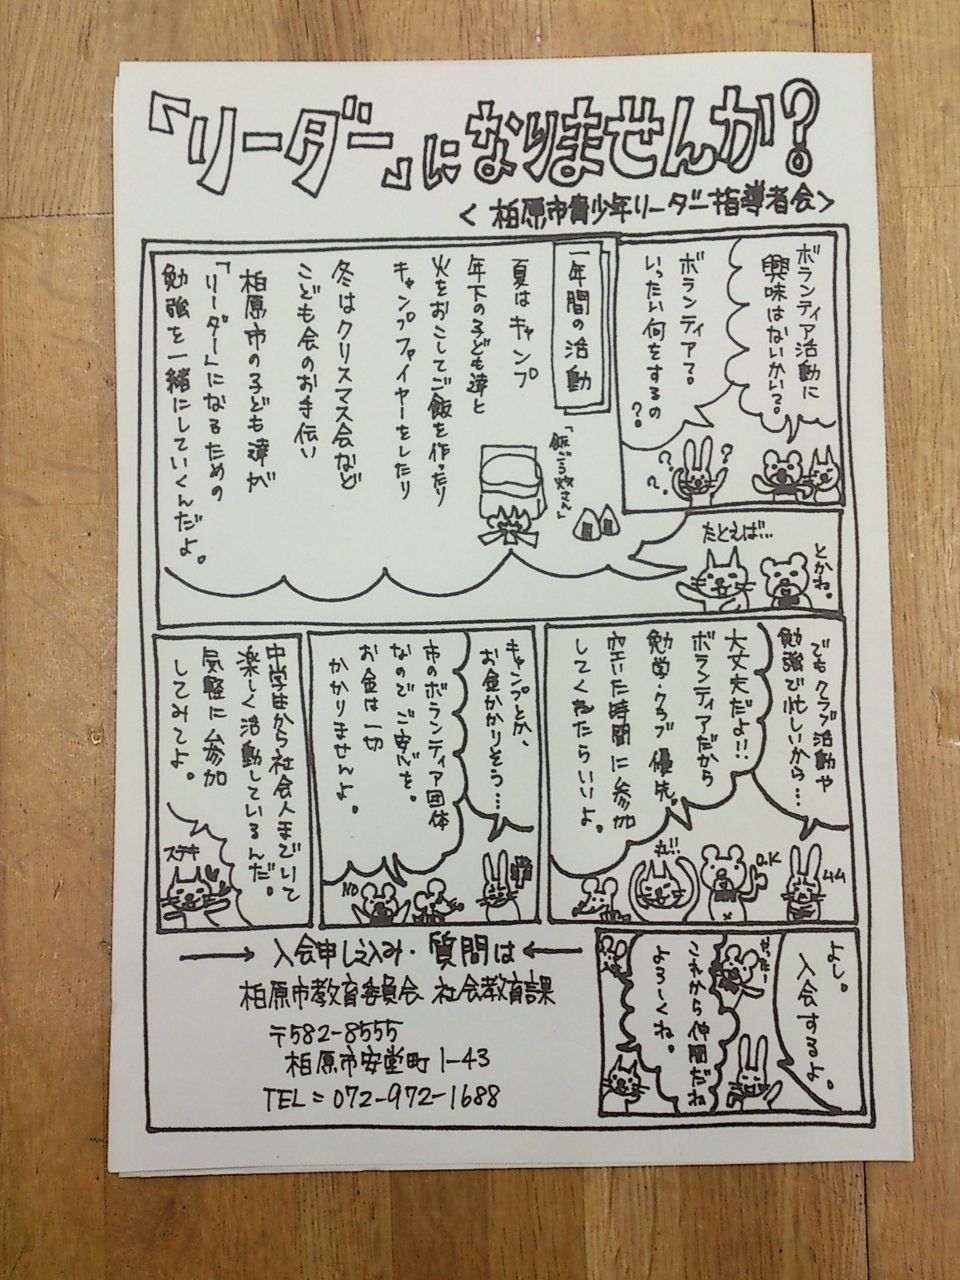 「リーダー」になりませんか?
<柏原市青少年リーダー指導者会>
ボランティア活動に
興味はないかい?
ボランティアって。
いったい何をするの
?
?
?
?
たとえば…
とかね。
一年間の活動
夏はキャンプ
年下の子ども達と
火をおこしてご飯を作ったり
キャンプファイヤーをしたり
冬はクリスマス会など
こども会のお手伝い
柏原市の子ども達が
「リーダー」になるための
勉強を一緒にしていくんだよ。
「飯ごう炊さん」
でもクラブ活動や
勉強で忙しいから…
大丈夫だよ!!
ボランティアだから
勉学・クラブ優先。
空いた時間に参加
してくれたらいいよ。
丸!!
O.K
キャンプとか、
お金かかりそう…
市のボランティア団体
なのでご安心を。
お金は一切
かかりませんよ。
NO
中学生から社会人までいて
楽しく活動しているんだ。
気軽に参加
してみてよ。
ステキ
よし。
入会するよ。
これから仲間だね
よろしくね。
→ 入会申し込み・質問は ←
柏原市教育委員会 社会教育課
〒582-8555
柏原市安堂町1-43
TEL=072-972-1688